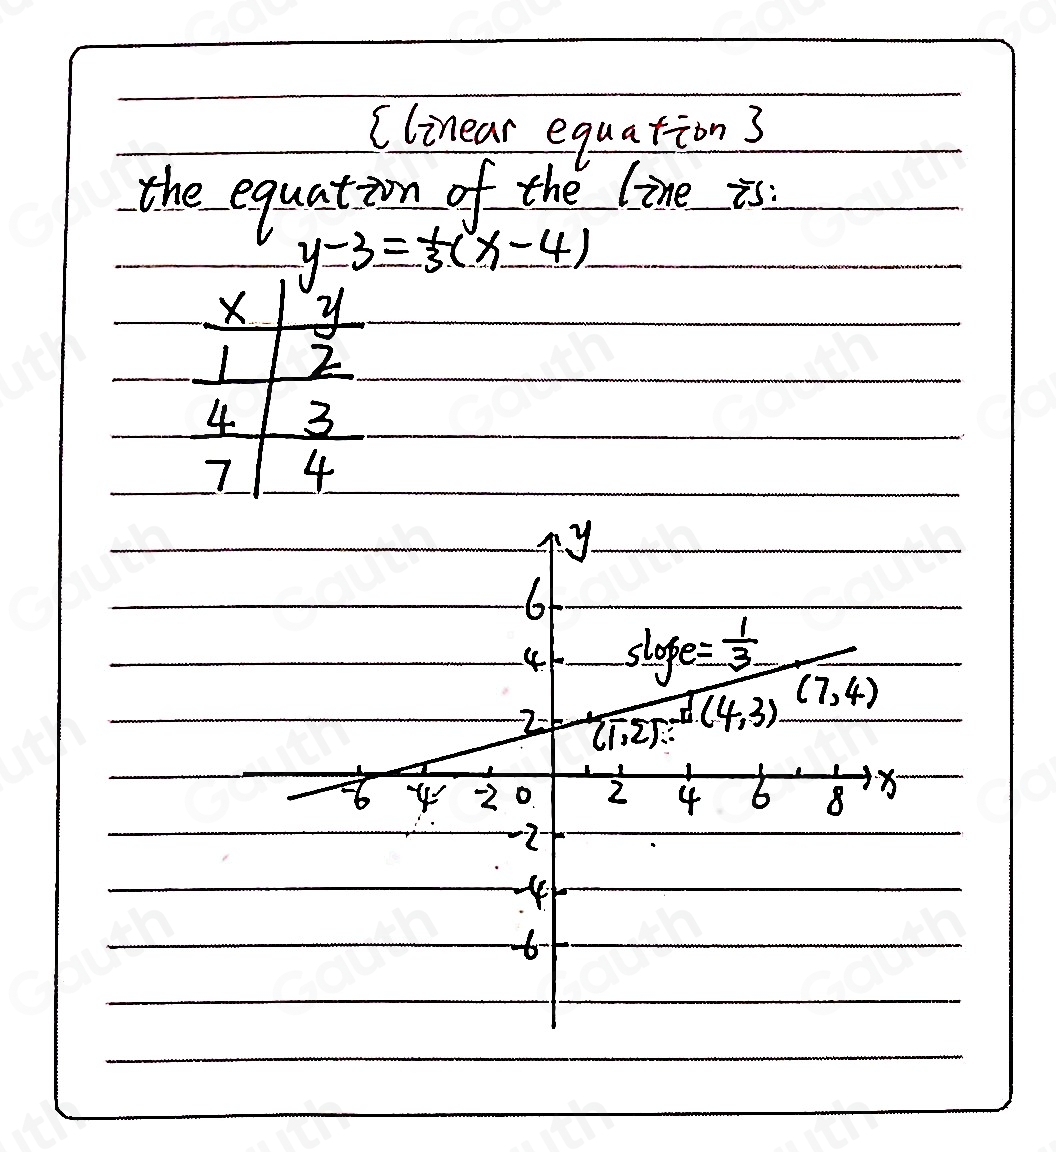 {linear equation}
the equation of the line is:
y-3=1/3(x-4)
x y
1 2
4 3
7 4
y
6
4
slope=1/3
(7,4)
2
(1,2)
(4,3)
-6 -4 -2 0 2 4 6 8 x
-2
-4
-6
Gauth